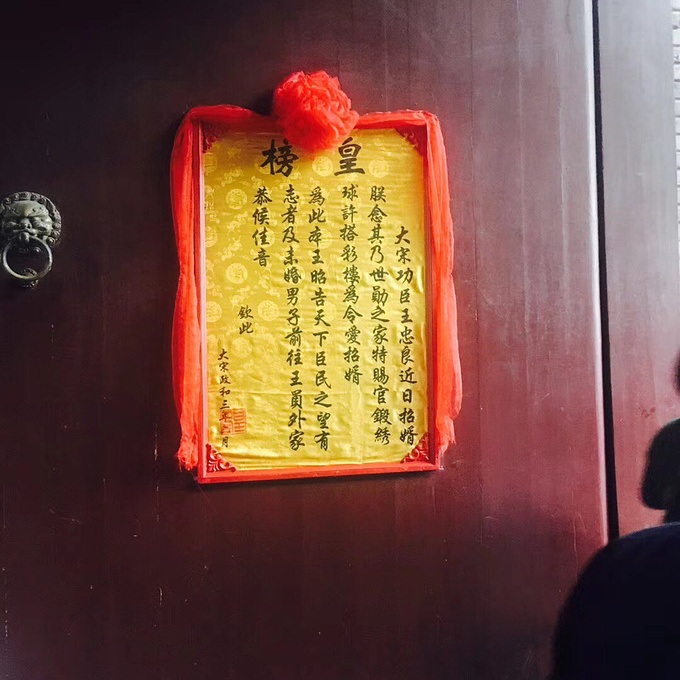 皇榜
大宋功臣王忠良近日招婿
朕愈其乃世勛之家特賜官鍛綉
球許搭彩樓為令愛招婿
為此本王昭告天下臣民之望有
志者及未婚男子前往王員外家
恭候佳音
欽此
大宋政和三年月